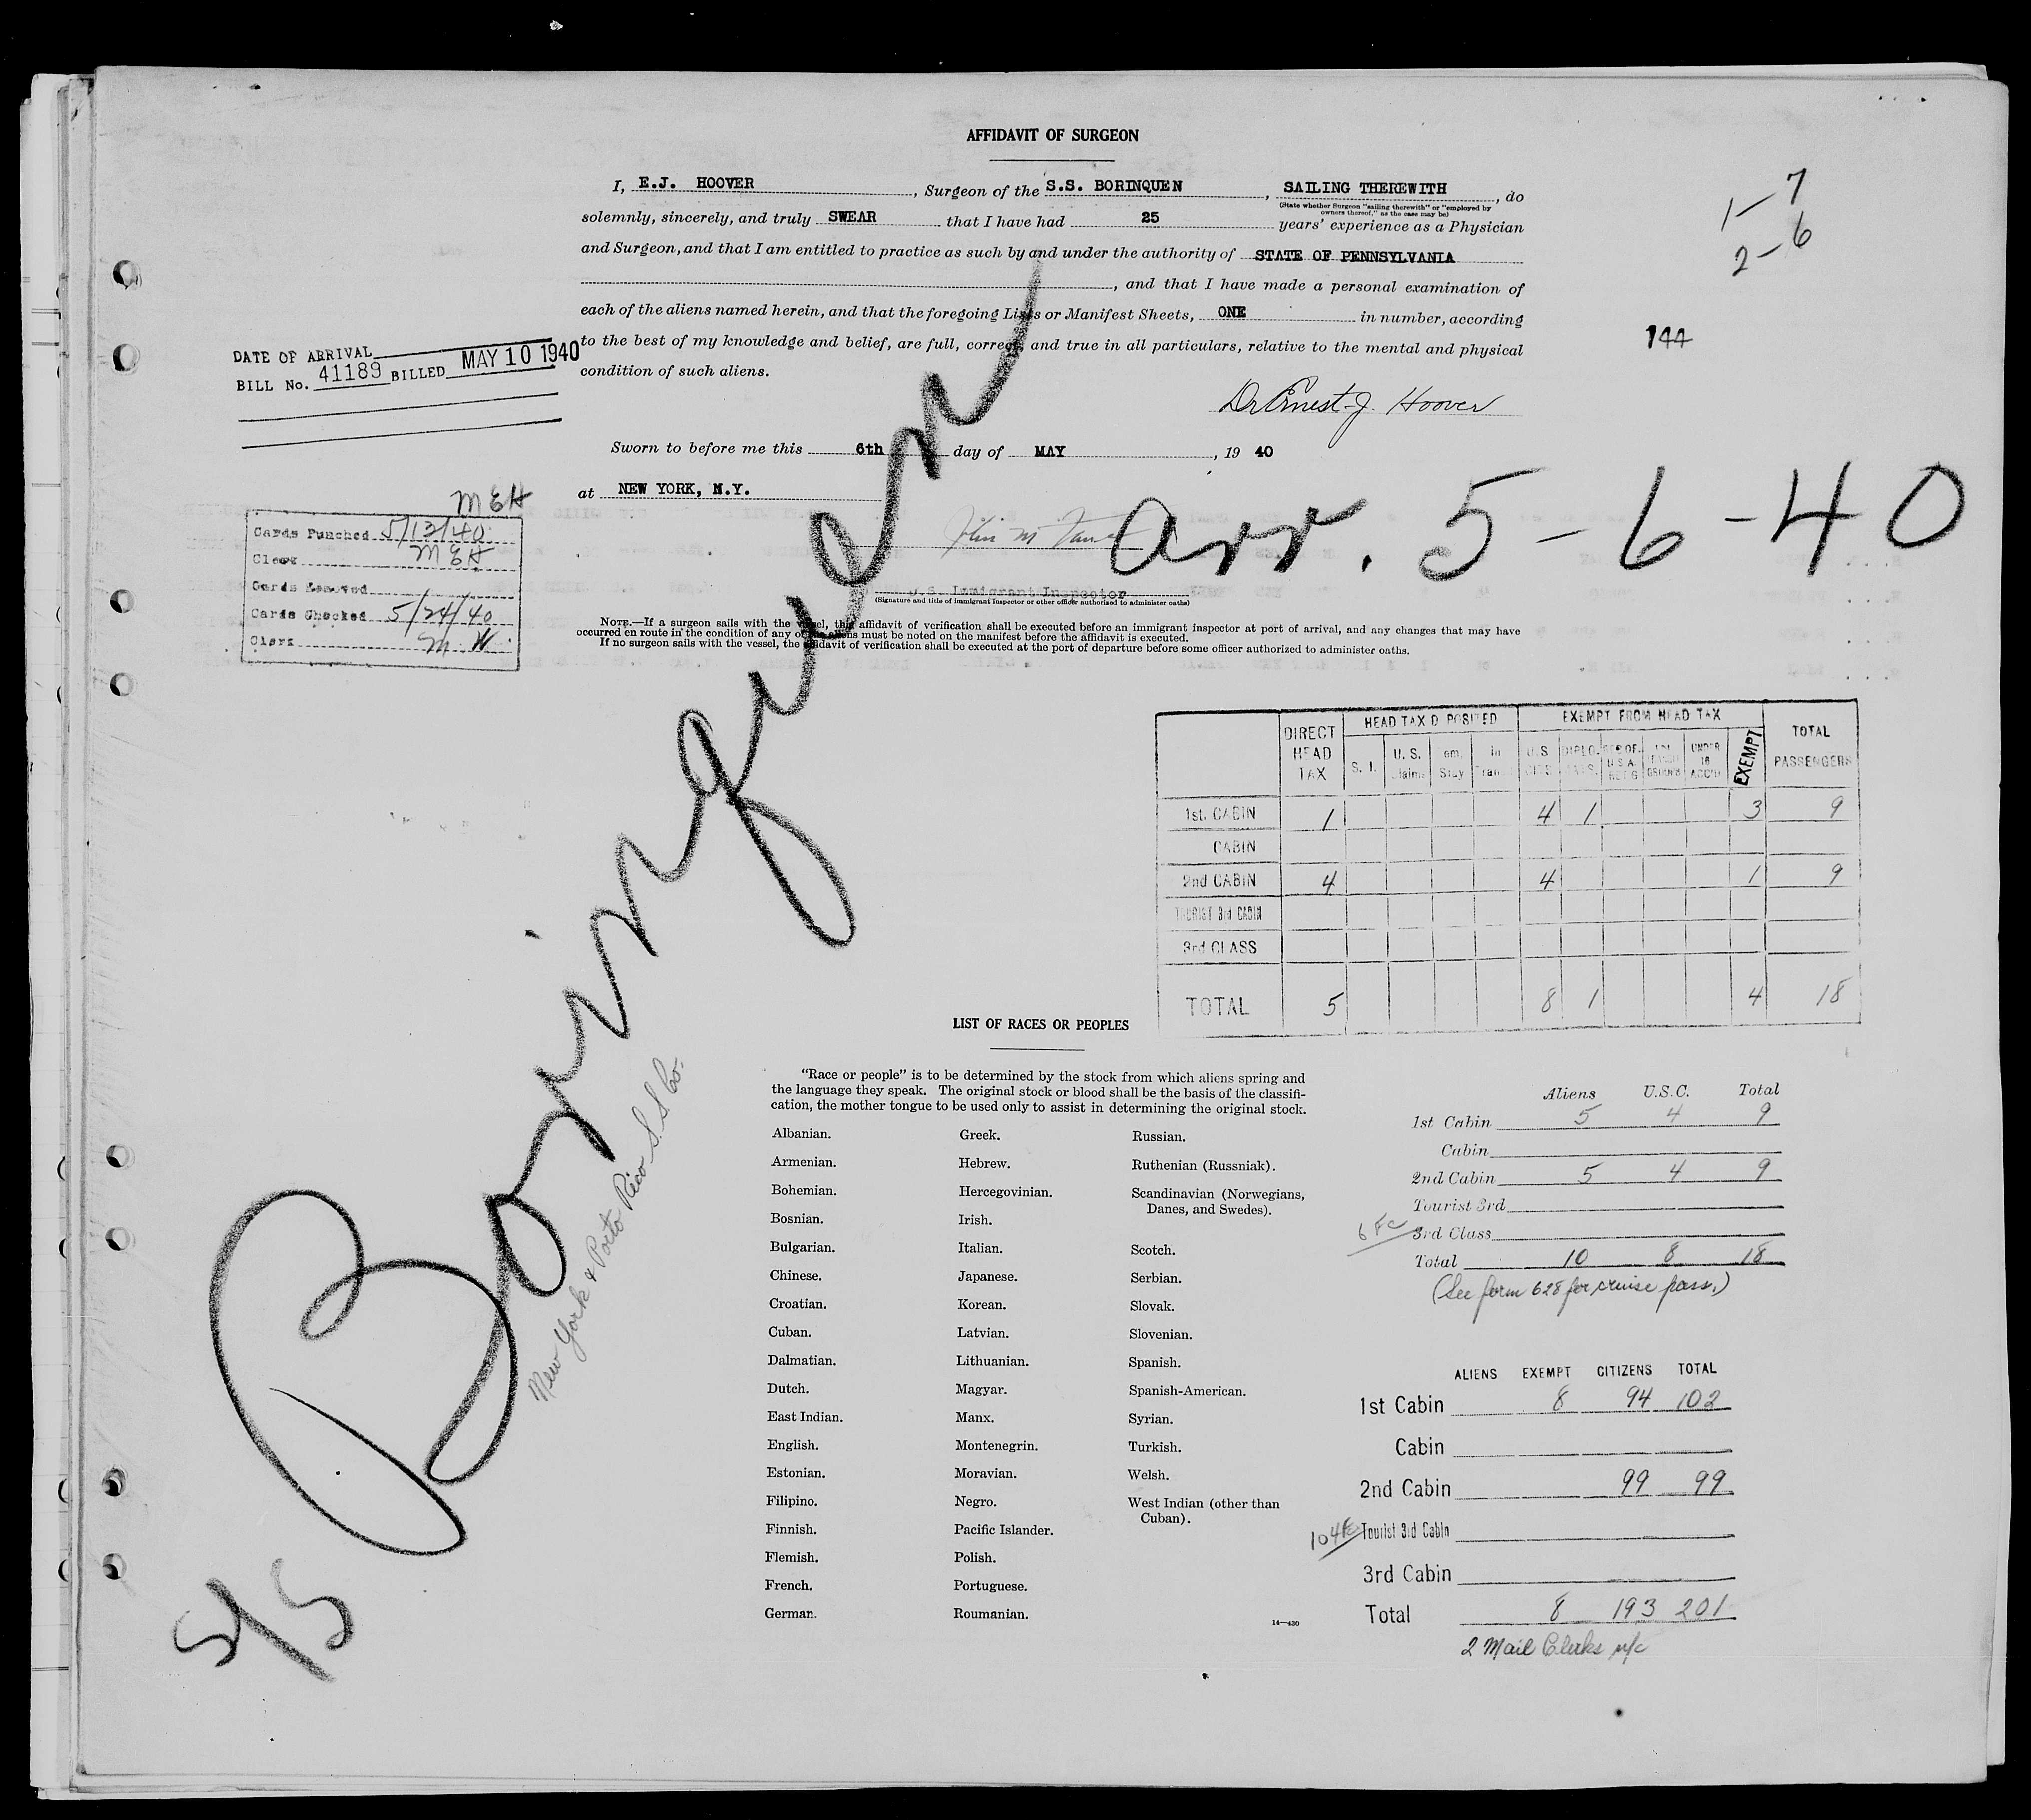 AFFIDAVIT OF SURGEON
I, E.J. HOOVER, Surgeon of the S.S. BORINQUEN, SAILING THEREWITH, do
(State whether Surgeon "sailing therewith" or "employed by
owners thereof," as the case may be)
solemnly, sincerely, and truly SWEAR that I have had 25 years' experience as a Physician
and Surgeon, and that I am entitled to practice as such by and under the authority of STATE OF PENNSYLVANIA
, and that I have made a personal examination of
each of the aliens named herein, and that the foregoing Lists or Manifest Sheets, ONE in number, according
to the best of my knowledge and belief, are full, correct, and true in all particulars, relative to the mental and physical
condition of such aliens.
1-7
2-6
144
DATE OF ARRIVAL
BILL No. 41189 BILLED MAY 10 1940
Dr Ernest J. Hoover
Sworn to before me this 6th day of MAY, 19 40
at NEW YORK, N.Y.
arr. 5-6-40
MEH
Cards Punched 5/13/40
Clerk MEH
Cards Removed
Cards Checked 5/24/40
Clerk M.W.
U.S. Immigrant Inspector
(Signature and title of immigrant inspector or other officer authorized to administer oaths)
NOTE.—If a surgeon sails with the vessel, this affidavit of verification shall be executed before an immigrant inspector at port of arrival, and any changes that may have
occurred en route in the condition of any of the aliens must be noted on the manifest before the affidavit is executed.
If no surgeon sails with the vessel, the affidavit of verification shall be executed at the port of departure before some officer authorized to administer oaths.
S/S Borinqueen
New York & Porto Rico S.S. Co.
DIRECT HEAD TAX HEAD TAX D POSITED EXEMPT FROM HEAD TAX TOTAL PASSENGERS
S. I. U. S. Claim Stay Tran U.S. CITS. DIPLO. UNDER 16 ACC'D EXEMPT
1st. CABIN 1 4 1 3 9
CABIN
2nd CABIN 4 4 1 9
TOURIST 3rd CABIN
3rd CLASS
TOTAL 5 8 1 4 18
LIST OF RACES OR PEOPLES
"Race or people" is to be determined by the stock from which aliens spring and
the language they speak. The original stock or blood shall be the basis of the classifi-
cation, the mother tongue to be used only to assist in determining the original stock.
Albanian.
Armenian.
Bohemian.
Bosnian.
Bulgarian.
Chinese.
Croatian.
Cuban.
Dalmatian.
Dutch.
East Indian.
English.
Estonian.
Filipino.
Finnish.
Flemish.
French.
German.
Greek.
Hebrew.
Hercegovinian.
Irish.
Italian.
Japanese.
Korean.
Latvian.
Lithuanian.
Magyar.
Manx.
Montenegrin.
Moravian.
Negro.
Pacific Islander.
Polish.
Portuguese.
Roumanian.
Russian.
Ruthenian (Russniak).
Scandinavian (Norwegians,
Danes, and Swedes).
Scotch.
Serbian.
Slovak.
Slovenian.
Spanish.
Spanish-American.
Syrian.
Turkish.
Welsh.
West Indian (other than
Cuban).
14—430
Aliens U.S.C. Total
1st Cabin 5 4 9
Cabin
2nd Cabin 5 4 9
Tourist 3rd
6 FC 3rd Class
Total 10 8 18
(See form 628 for cruise pass.)
ALIENS EXEMPT CITIZENS TOTAL
1st Cabin 8 94 102
Cabin
2nd Cabin 99 99
Tourist 3rd Cabin
3rd Cabin
Total 8 193 201
2 Mail Clerks